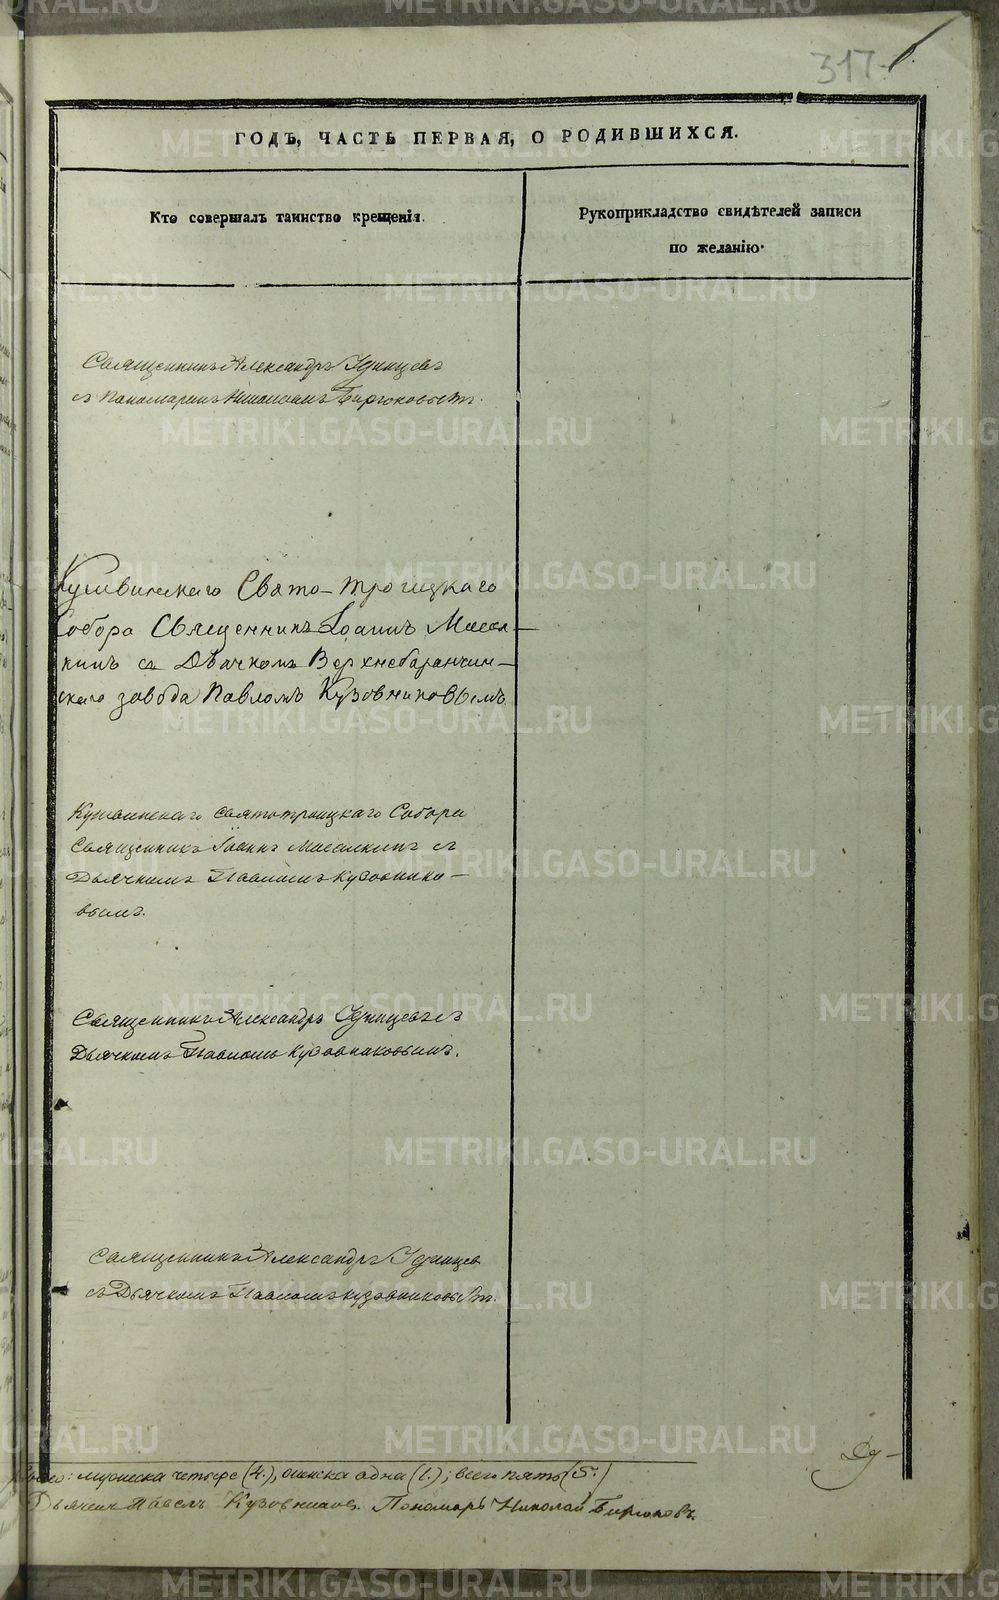 317
ГОДЪ, ЧАСТЬ ПЕРВАЯ, О РОДИВШИХСЯ.
Кто совершалъ таинство крещенія.
Рукоприкладство свидѣтелей записи
по желанію.
Священникъ Александръ Удинцевъ
съ Пономаремъ Николаемъ Бирюковымъ.
Кушвинскаго Свято-Троицкаго
Собора Священникъ Іоаннъ Масал-
кинъ съ Дьячкомъ Верхнебаранчин-
скаго завода Павломъ Кузовниковымъ
Кушвинскаго Святотроицкаго Собора
Священникъ Іоаннъ Масалкинъ съ
Дьячкомъ Павломъ Кузовнико-
вымъ.
Священникъ Александръ Удинцевъ съ
Дьячкомъ Павломъ Кузовниковымъ.
Священникъ Александръ Удинцев
съ Дьячкомъ Павломъ Кузовниковымъ.
мужеска четыре (4.), женска одна (1.); всего пять (5.)
Дьячекъ Павелъ Кузовников. Пономарь Николай Бирюковъ.
METRIKI.GASO-URAL.RU